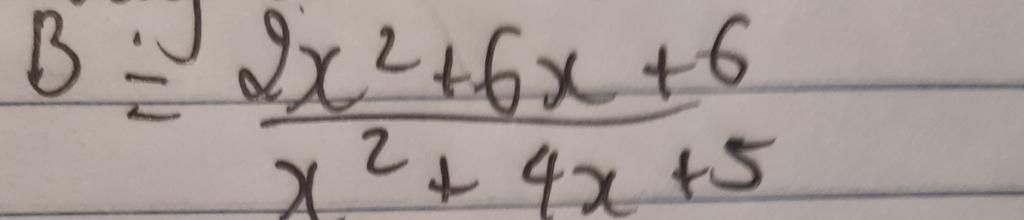 B = 2x² + 6x + 6
x² + 4x + 5